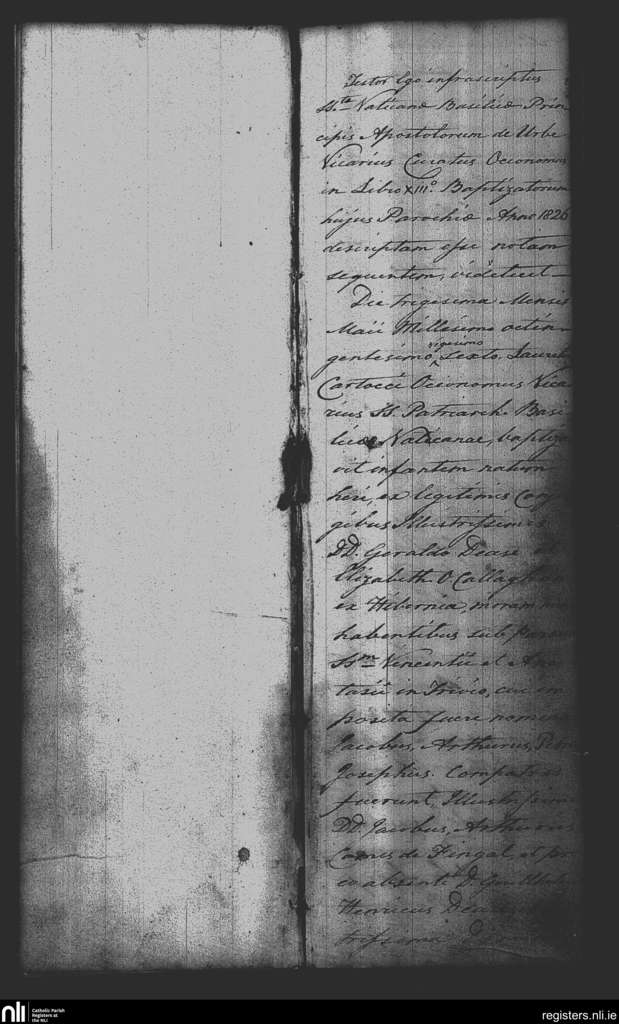 Testor Ego infrascriptus
SS.tæ Vaticanæ Basilicæ Prin
cipis Apostolorum de Urbe
Vicarius Curatus Oeconomus
in Libro XIII.° Baptizatorum
hujus Parochiæ Anno 1826
descriptam esse notam
sequentem, videlicet —
Die trigesima Mensis
Maii Millesimo octin
gentesimo, vigesimo Sexto.
Cartocci Oeconomus Vica
rius SS. Patriarch. Basi
licæ Vaticanæ, baptiza
vit infantem natum
heri, ex legitimis Conju
gibus Illustrissimis
DD. Geraldo Dease et
Elizabeth O'Callaghan
ex Hibernia, moram
habentibus sub Paroc
SS.m Vincentii et Anas
tasii in Trivio, cui im
posita fuere nomina
Jacobus, Arthurus,
Josephus. Compatres
fuerunt, Illustrissimi
DD. Jacobus, Arthurus
Comes de Fingal, et pro
eo absente D.
Henricus Dease
trissima
nli
Catholic Parish
Registers at
the NLI
registers.nli.ie